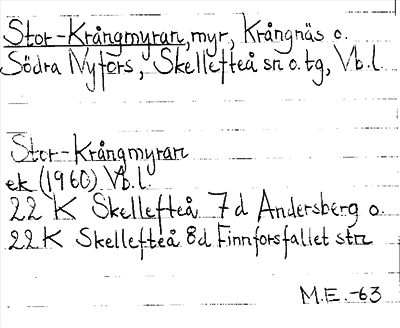 Stor-Krångmyran, myr, Krångnäs o.
Södra Nyfors, Skellefteå sn o. tg, Vb. l.
Stor-Krångmyran
ek (1960) Vb. l.
22 K Skellefteå 7d Andersberg o.
22 K Skellefteå 8d Finnforsfallet str
M.E. -63